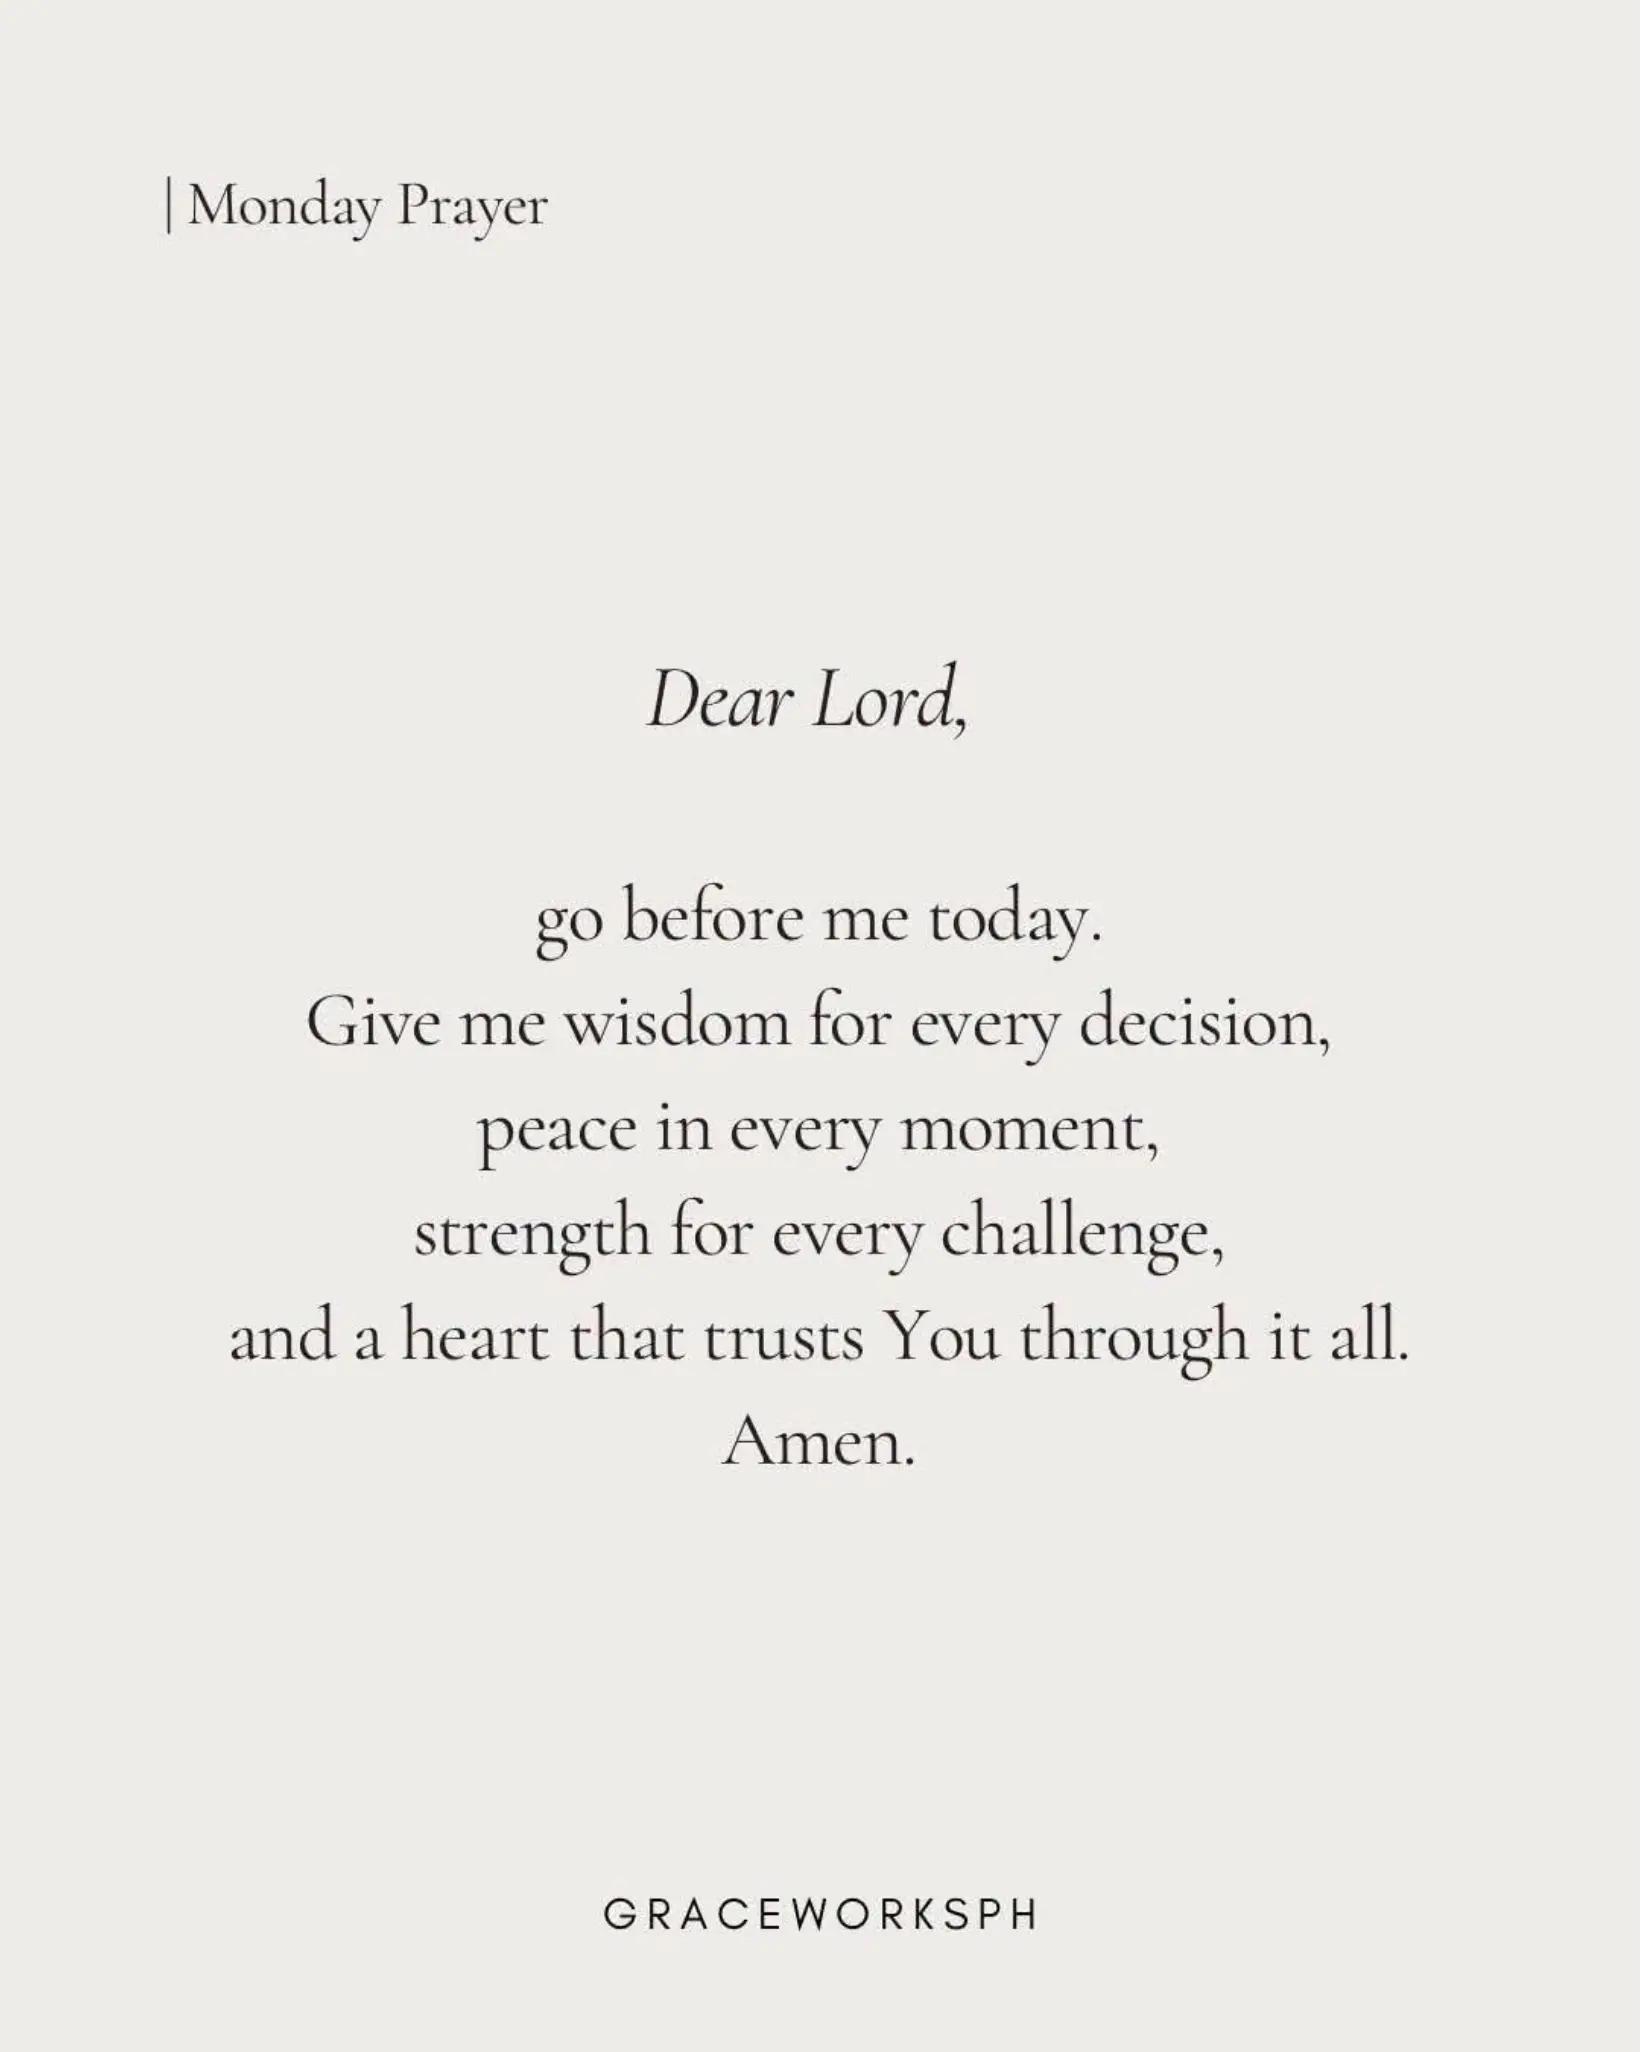 | Monday Prayer
Dear Lord,
go before me today.
Give me wisdom for every decision,
peace in every moment,
strength for every challenge,
and a heart that trusts You through it all.
Amen.
GRACEWORKSPH